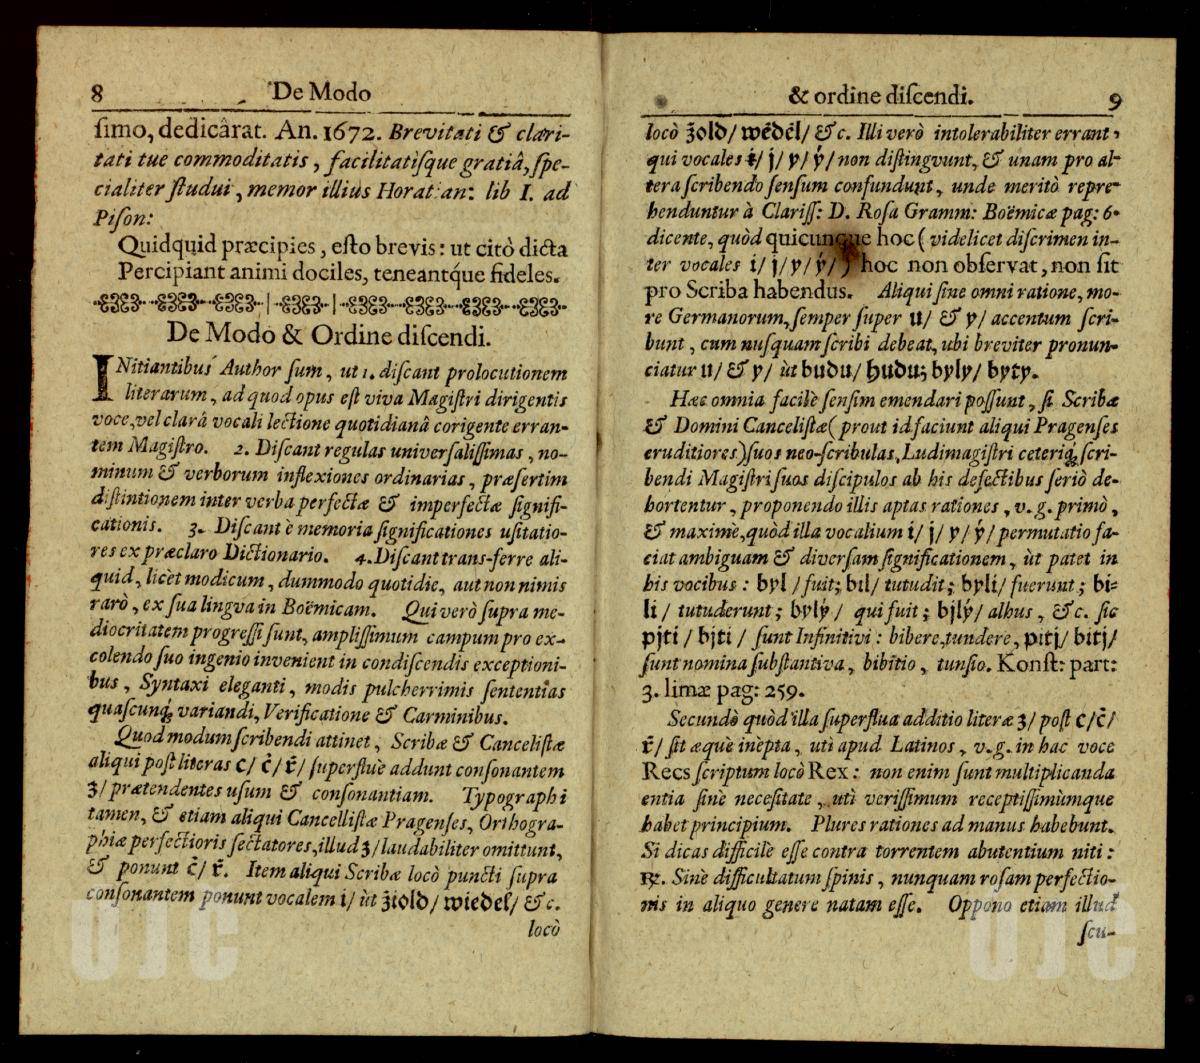 8 De Modo
ſimo, dedicârat. An. 1672. Brevitati & clari-
tati tue commoditatis, facilitatiſque gratiâ, ſpe-
cialiter ſtudui, memor illius Horatian: lib I. ad
Piſon:
Quidquid præcipies, eſto brevis: ut citò dicta
Percipiant animi dociles, teneantq́ue fideles.
De Modo & Ordine diſcendi.
INitiantibus Author ſum, ut 1. diſcant prolocutionem
literarum, ad quod opus eſt viva Magiſtri dirigentis
voce, vel clarâ vocali lectione quotidianâ corigente erran-
tem Magiſtro. 2. Diſcant regulas univerſaliſſimas, no-
minum & verborum inflexiones ordinarias, præſertim
diſtintionem inter verba perfectæ & imperfectæ ſignifi-
cationis. 3. Diſcant è memoria ſignificationes uſitatio-
res ex præclaro Dictionario. 4. Diſcant trans-ferre ali-
quid, licèt modicum, dummodo quotidie, aut non nimis
rarò, ex ſua lingva in Boëmicam. Qui verò ſupra me-
diocritatem progreſſi ſunt, ampliſſimum campum pro ex-
colendo ſuo ingenio invenient in condiſcendis exceptioni-
bus, Syntaxi eleganti, modis pulcherrimis ſententias
quaſcunq́; variandi, Verificatione & Carminibus.
Quod modum ſcribendi attinet, Scribæ & Canceliſtæ
aliqui poſt literas c/ č/ ř/ ſuperfluè addunt conſonantem
ʒ/ prætendentes uſum & conſonantiam. Typographi
tamen, & etiam aliqui Cancelliſtæ Pragenſes, Orthogra-
phiæ perfectioris ſectatores, illud ʒ/ laudabiliter omittunt,
& ponunt č/ ř. Item aliqui Scribæ locò puncti ſupra
conſonantem ponunt vocalem i/ ùt žiold/ wiedel/ &c.
locò
& ordine diſcendi. 9
locò žold/ wědĕl/ &c. Illi verò intolerabiliter errant,
qui vocales i/ j/ y/ ý/ non diſtingvunt, & unam pro al-
tera ſcribendo ſenſum confundunt, unde meritò repre-
henduntur à Clariſſ: D. Roſa Gramm: Boëmicæ pag: 6.
dicente, quòd quicunque hoc (videlicet diſcrimen in-
ter vocales i/ j/ y/ ý/) hoc non obſervat, non ſit
pro Scriba habendus. Aliqui ſine omni ratione, mo-
re Germanorum, ſemper ſuper u/ & y/ accentum ſcri-
bunt, cum nuſquam ſcribi debeat, ubi breviter pronun-
ciatur u/ & y/ ùt budu/ hudu; byly/ byty.
Hæc omnia facilè ſenſim emendari poſſunt, ſi Scribæ
& Domini Canceliſtæ (prout id faciunt aliqui Pragenſes
eruditiores) ſuos neo-ſcribulas, Ludimagiſtri ceteriq́; ſcri-
bendi Magiſtri ſuos diſcipulos ab his defectibus ſeriò de-
hortentur, proponendo illis aptas rationes, v. g. primò,
& maximè, quòd illa vocalium i/ j/ y/ ý/ permutatio fa-
ciat ambiguam & diverſam ſignificationem, ùt patet in
his vocibus: byl/ fuit; bil/ tutudit; byli/ fuerunt; bi-
li/ tutuderunt; bylý/ qui fuit; bjlý/ albus, &c. ſic
pjti/ bjti/ ſunt Infinitivi: bibere, tundere, pitj/ bitj/
ſunt nomina ſubſtantiva, bibitio, tunſio. Konſt: part:
3. limæ pag: 259.
Secundò quòd illa ſuperflua additio literæ ʒ/ poſt c/ č/
ř/ ſit æquè inèpta, uti apud Latinos, v. g. in hac voce
Recs ſcriptum locò Rex: non enim ſunt multiplicanda
entia ſinè neceſitate, utì veriſſimum receptiſſimùmque
habet principium. Plures rationes ad manus habebunt.
Si dicas difficilè eſſe contra torrentem abutentium niti:
℞. Sinè difficultatum ſpinis, nunquam roſam perfectio-
nis in aliquo genere natam eſſe. Oppono etiam illud
ſcu-